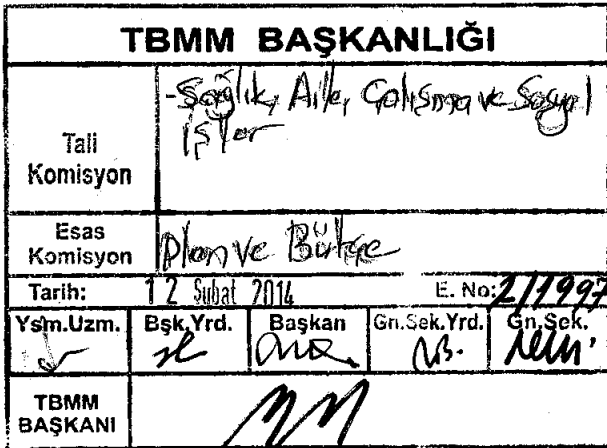 TBMM BAŞKANLIĞI
Tali Komisyon
-Sağlık, Aile, Çalışma ve Sosyal
İşler
Esas Komisyon
Plan ve Bütçe
Tarih: 12 Subat 2014 E. No: 2/1997
Ysm.Uzm. Bşk.Yrd. Başkan Gn.Sek.Yrd. Gn.Sek.
TBMM
BAŞKANI